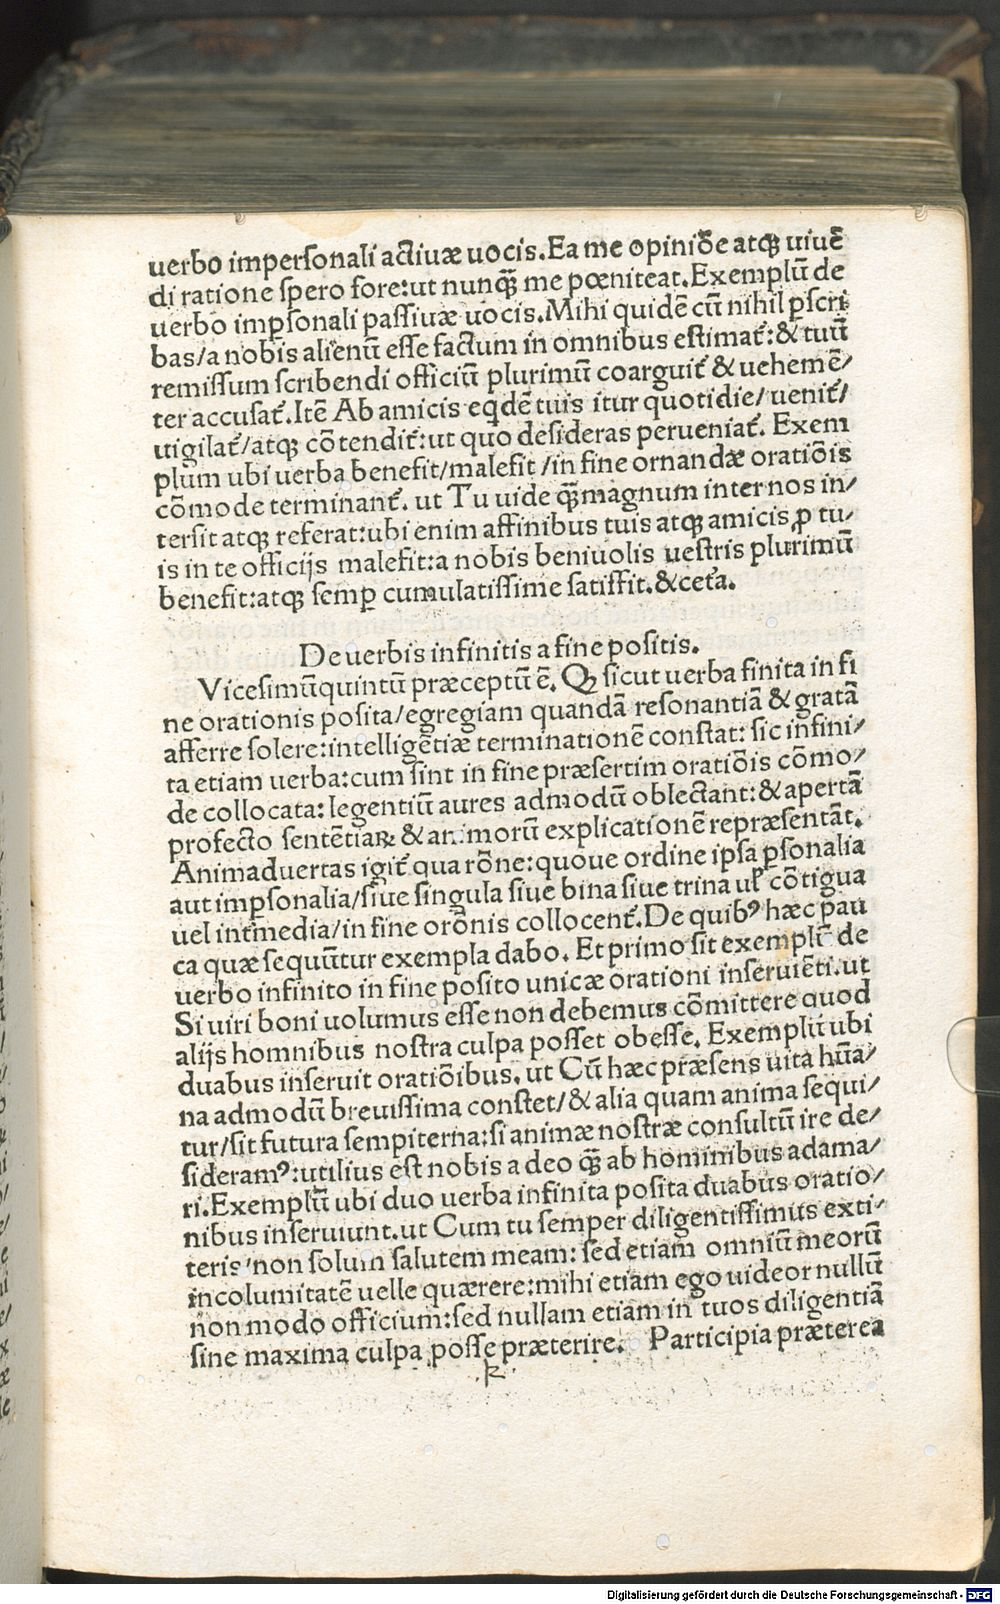 uerbo impersonali actiuæ uocis. Ea me opiniōe atqꝫ uiuē
di ratione spero fore: ut nunqꝫ̄ me pœniteat. Exemplū de
uerbo imꝑsonali passiuæ uocis. Mihi quidē cū nihil ꝑscri
bas/a nobis alienū esse factum in omnibus estimat᷑: & tuū
remissum scribendi officiū plurimū coarguit᷑ & uehemē/
ter accusat᷑. Itē Ab amicis eqdē tuis itur quotidie/ uenit᷑/
uigilat᷑/atqꝫ cōtendit᷑: ut quo desideras perueniat᷑. Exem
plum ubi uerba benefit/malefit/in fine ornandæ oratiōis
cōmode terminant᷑. ut Tu uide qꝫ̄ magnum inter nos in/
tersit atqꝫ referat: ubi enim affinibus tuis atqꝫ amicis ꝓ tu/
is in te officijs malefit: a nobis beniuolis uestris plurimū
benefit: atqꝫ semꝑ cumulatissime satisfit. & cet᷑a.
De uerbis infinitis a fine positis.
Vicesimūquintū præceptū ē. Qꝫ sicut uerba finita in fi
ne orationis posita/egregiam quandā resonantiā & gratā
afferre solere: intelligētiæ terminationē constat: sic infini/
ta etiam uerba: cum sint in fine præsertim oratiōis cōmo/
de collocata: legentiū aures admodū oblectant: & apertā
profecto sentētiaꝝ & animorū explicationē repræsentāt.
Animaduertas igit᷑ qua rōne: quoue ordine ipsa ꝑsonalia
aut imꝑsonalia/siue singula siue bina siue trina ul̵ cōtigua
uel int᷑media/in fine orōnis collocent᷑. De quibꝰ hæc pau
ca quæ sequūtur exempla dabo. Et primo sit exemplū de
uerbo infinito in fine posito unicæ orationi inseruiēti. ut
Si uiri boni uolumus esse non debemus cōmittere quod
alijs homnibus nostra culpa posset obesse. Exemplū ubi
duabus inseruit oratiōibus. ut Cū hæc præsens uita hūa/
na admodū breuissima constet/& alia quam anima sequi/
tur/sit futura sempiterna: si animæ nostræ consultū ire de/
sideramꝰ: utilius est nobis a deo qꝫ̄ ab hominibus adama/
ri. Exemplū ubi duo uerba infinita posita duabus oratio/
nibus inseruiunt. ut Cum tu semper diligentissimus exti/
teris/non solum salutem meam: sed etiam omniū meorū
incolumitatē uelle quærere: mihi etiam ego uideor nullū
non modo officium: sed nullam etiam in tuos diligentiā
sine maxima culpa posse præterire. Participia præterea
k
Digitalisierung gefördert durch die Deutsche Forschungsgemeinschaft - DFG